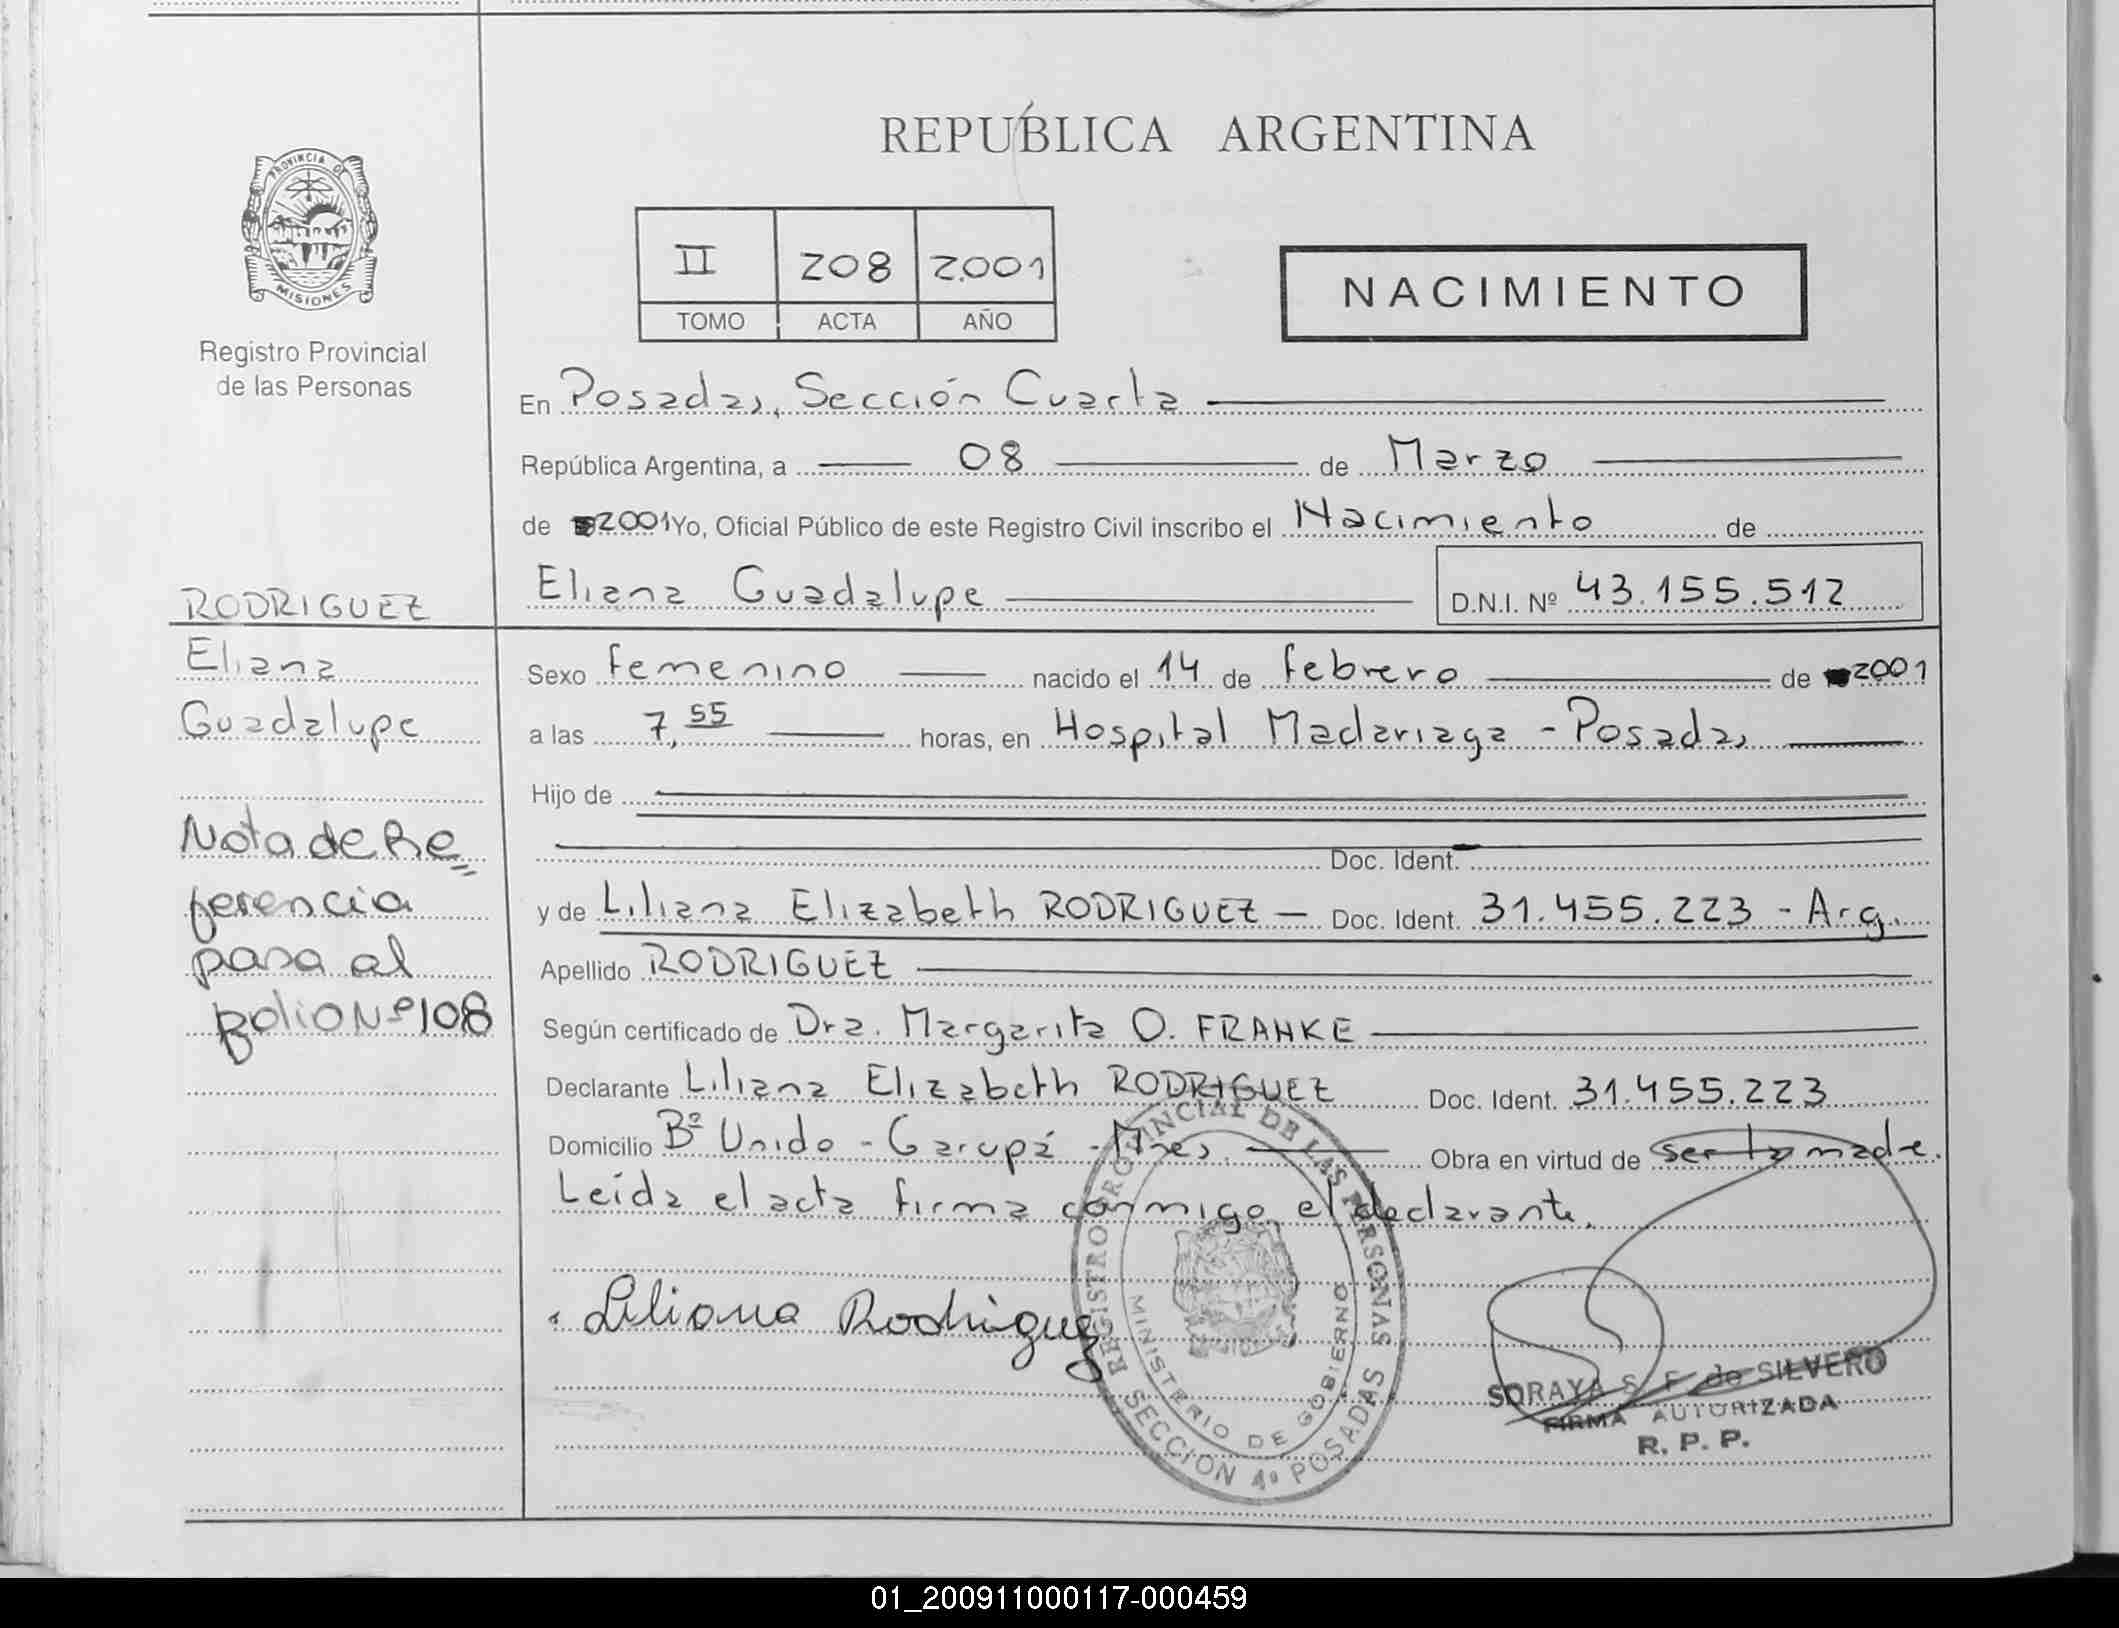 REPUBLICA ARGENTINA
PROVINCIA DE
MISIONES
Registro Provincial
de las Personas
II 208 2.001
TOMO ACTA AÑO
NACIMIENTO
En Posadas, Sección Cuarta
República Argentina, a 08 de Marzo
de 2001 Yo, Oficial Público de este Registro Civil inscribo el Nacimiento de
Eliana Guadalupe D.N.I. Nº 43.155.512
RODRIGUEZ
Eliana
Guadalupe
Nota de Re
ferencia
pasa al
folio Nº 108
Sexo femenino nacido el 14 de febrero de 2001
a las 7,55 horas, en Hospital Madariaga - Posadas
Hijo de
Doc. Ident.
y de Liliana Elizabeth RODRIGUEZ Doc. Ident. 31.455.223 - Arg.
Apellido RODRIGUEZ
Según certificado de Dra. Margarita O. FRANKE
Declarante Liliana Elizabeth RODRIGUEZ Doc. Ident. 31.455.223
Domicilio Bº Unido - Garupá - Mnes. Obra en virtud de ser la madre.
Leída el acta firma conmigo el declarante.
Liliana Rodriguez
REGISTRO PROVINCIAL DE LAS PERSONAS
MINISTERIO DE GOBIERNO
SECCION 4º POSADAS
SORAYA S. F. de SILVERO
FIRMA AUTORIZADA
R. P. P.
01_200911000117-000459